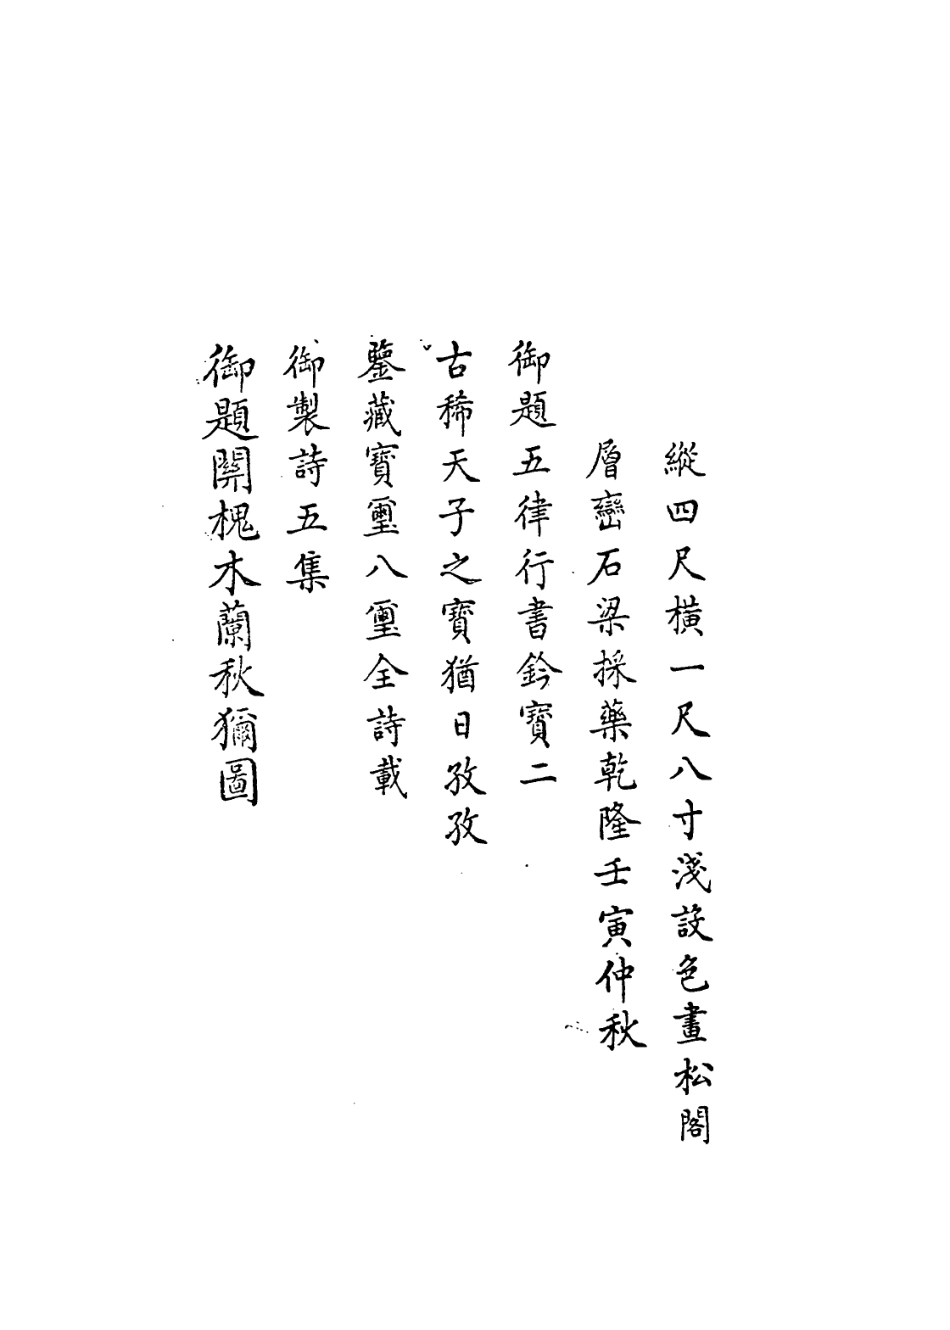 縱四尺橫一尺八寸淺設色畫松閣
層巒石梁採藥乾隆壬寅仲秋
御題五律行書鈐寶二
古稀天子之寶猶日孜孜
鑒藏寶璽八璽全詩載
御製詩五集
御題關槐木蘭秋獮圖